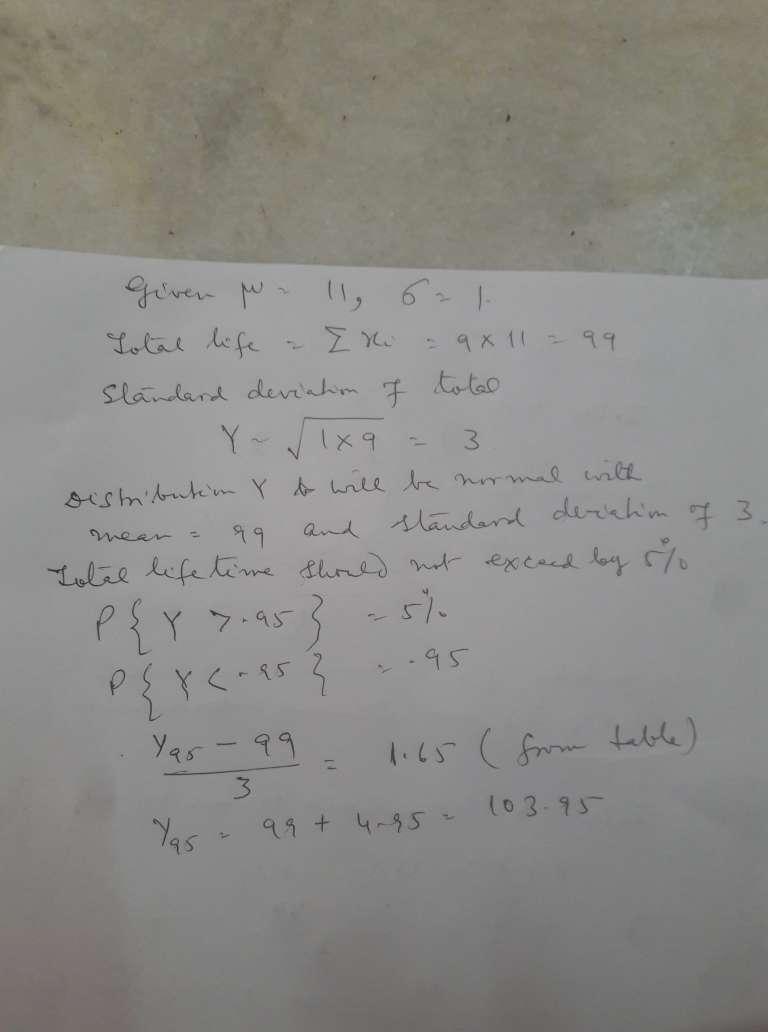 Given μ = 11, σ = 1.
Total life = Σ xi = 9 × 11 = 99
Standard deviation of total
Y ~ √1×9 = 3
Distribution Y will be normal with
mean = 99 and standard deviation of 3.
Total life time should not exceed by 5%
P { Y > .95 } = 5%
P { Y < .95 } = .95
Y95 - 99 / 3 = 1.65 (from table)
Y95 = 99 + 4.95 = 103.95